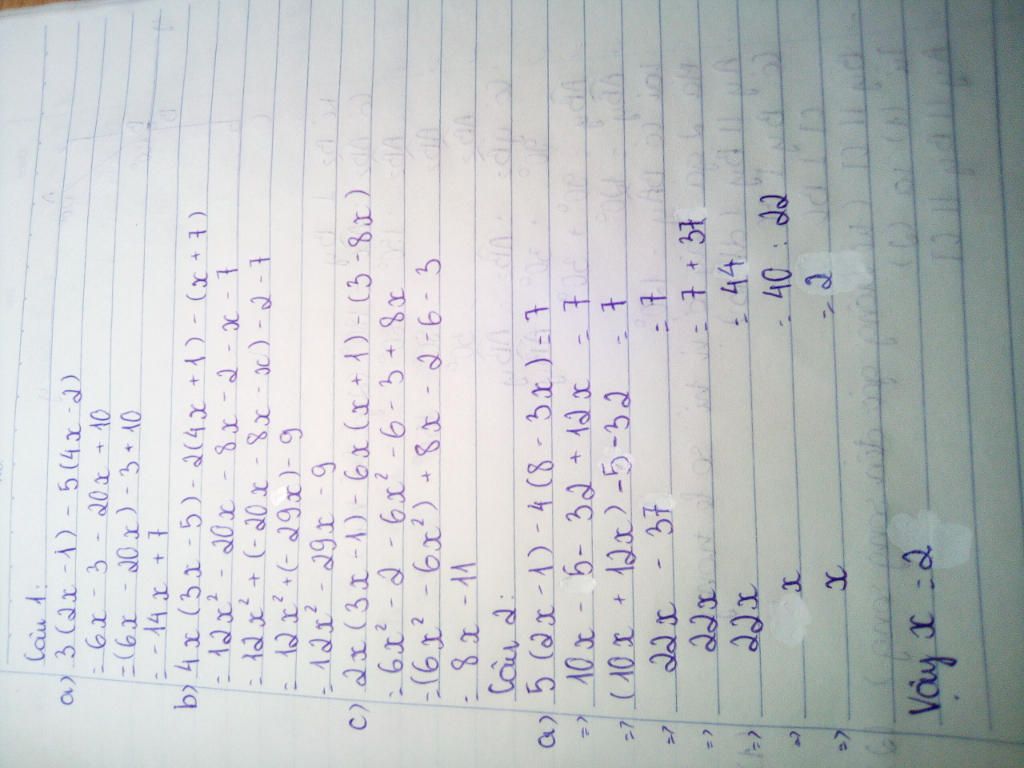 Câu 1:
a) 3(2x - 1) - 5(4x - 2)
= 6x - 3 - 20x + 10
= (6x - 20x) - 3 + 10
= -14x + 7
b) 4x(3x - 5) - 2(4x + 1) - (x + 7)
= 12x² - 20x - 8x - 2 - x - 7
= 12x² + (-20x - 8x - x) - 2 - 7
= 12x² + (-29x) - 9
= 12x² - 29x - 9
c) 2x(3x - 1) - 6x(x + 1) - (3 - 8x)
= 6x² - 2 - 6x² - 6 - 3 + 8x
= (6x² - 6x²) + 8x - 2 - 6 - 3
= 8x - 11
Câu 2:
a) 5(2x - 1) - 4(8 - 3x) = 7
=> 10x - 5 - 32 + 12x = 7
=> (10x + 12x) - 5 - 32 = 7
=> 22x - 37 = 7
=> 22x = 7 + 37
=> 22x = 44
=> x = 40 : 22
=> x = 2
Vậy x = 2